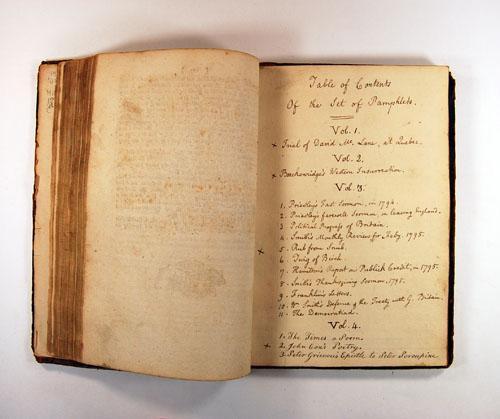 Table of Contents
Of the Set of Pamphlets.
Vol. 1.
x Trial of David Mc. Lane, at Quebec.
Vol. 2.
x Brackenridge's Western Insurrection.
Vol. 3.
1. Priestley's Fast Sermon, in 1794.
2. Priestley's farewell Sermon, on leaving England.
3. Political Progress of Britain.
4. Smith's Monthly Review for Feby. 1795.
x 5. Rub from Snub.
6. Twig of Birch.
7. Hamilton's Report on Publick Credit, in 1795.
8. Smith's Thanksgiving Sermon, 1795.
9. Franklin's Letters.
10. Wm Smith's Defence of the Treaty with G. Britain.
11. The Democratiad.
Vol. 4.
1. The Times a Poem.
x 2. John Cox's Poetry.
3. Peter Grievous's Epistle to Peter Porcupine